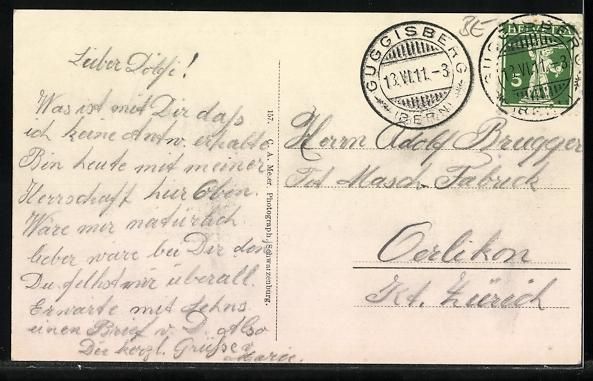 Lieber Dölfi!
Was ist mit Dir daß
ich keine Antw. erhalte
Bin heute mit meiner
Herrschaft hier oben.
Wäre mir natürlich
lieber wäre bei Dir denn
Du fehlst mir überall.
Erwarte mit
einen Brief v. D. Also
Dir herzl. Grüsse
Marie.
157. C. A. Meier, Photograph, Schwarzenburg.
BE
GUGGISBERG
13.VI.11.-3
(BERN)
HELVETIA
5
GUGGISBERG
13.VI.11.-3
(BERN)
Herrn Adolf Brugger
Masch. Fabrick
Oerlikon
Kt. Zürich